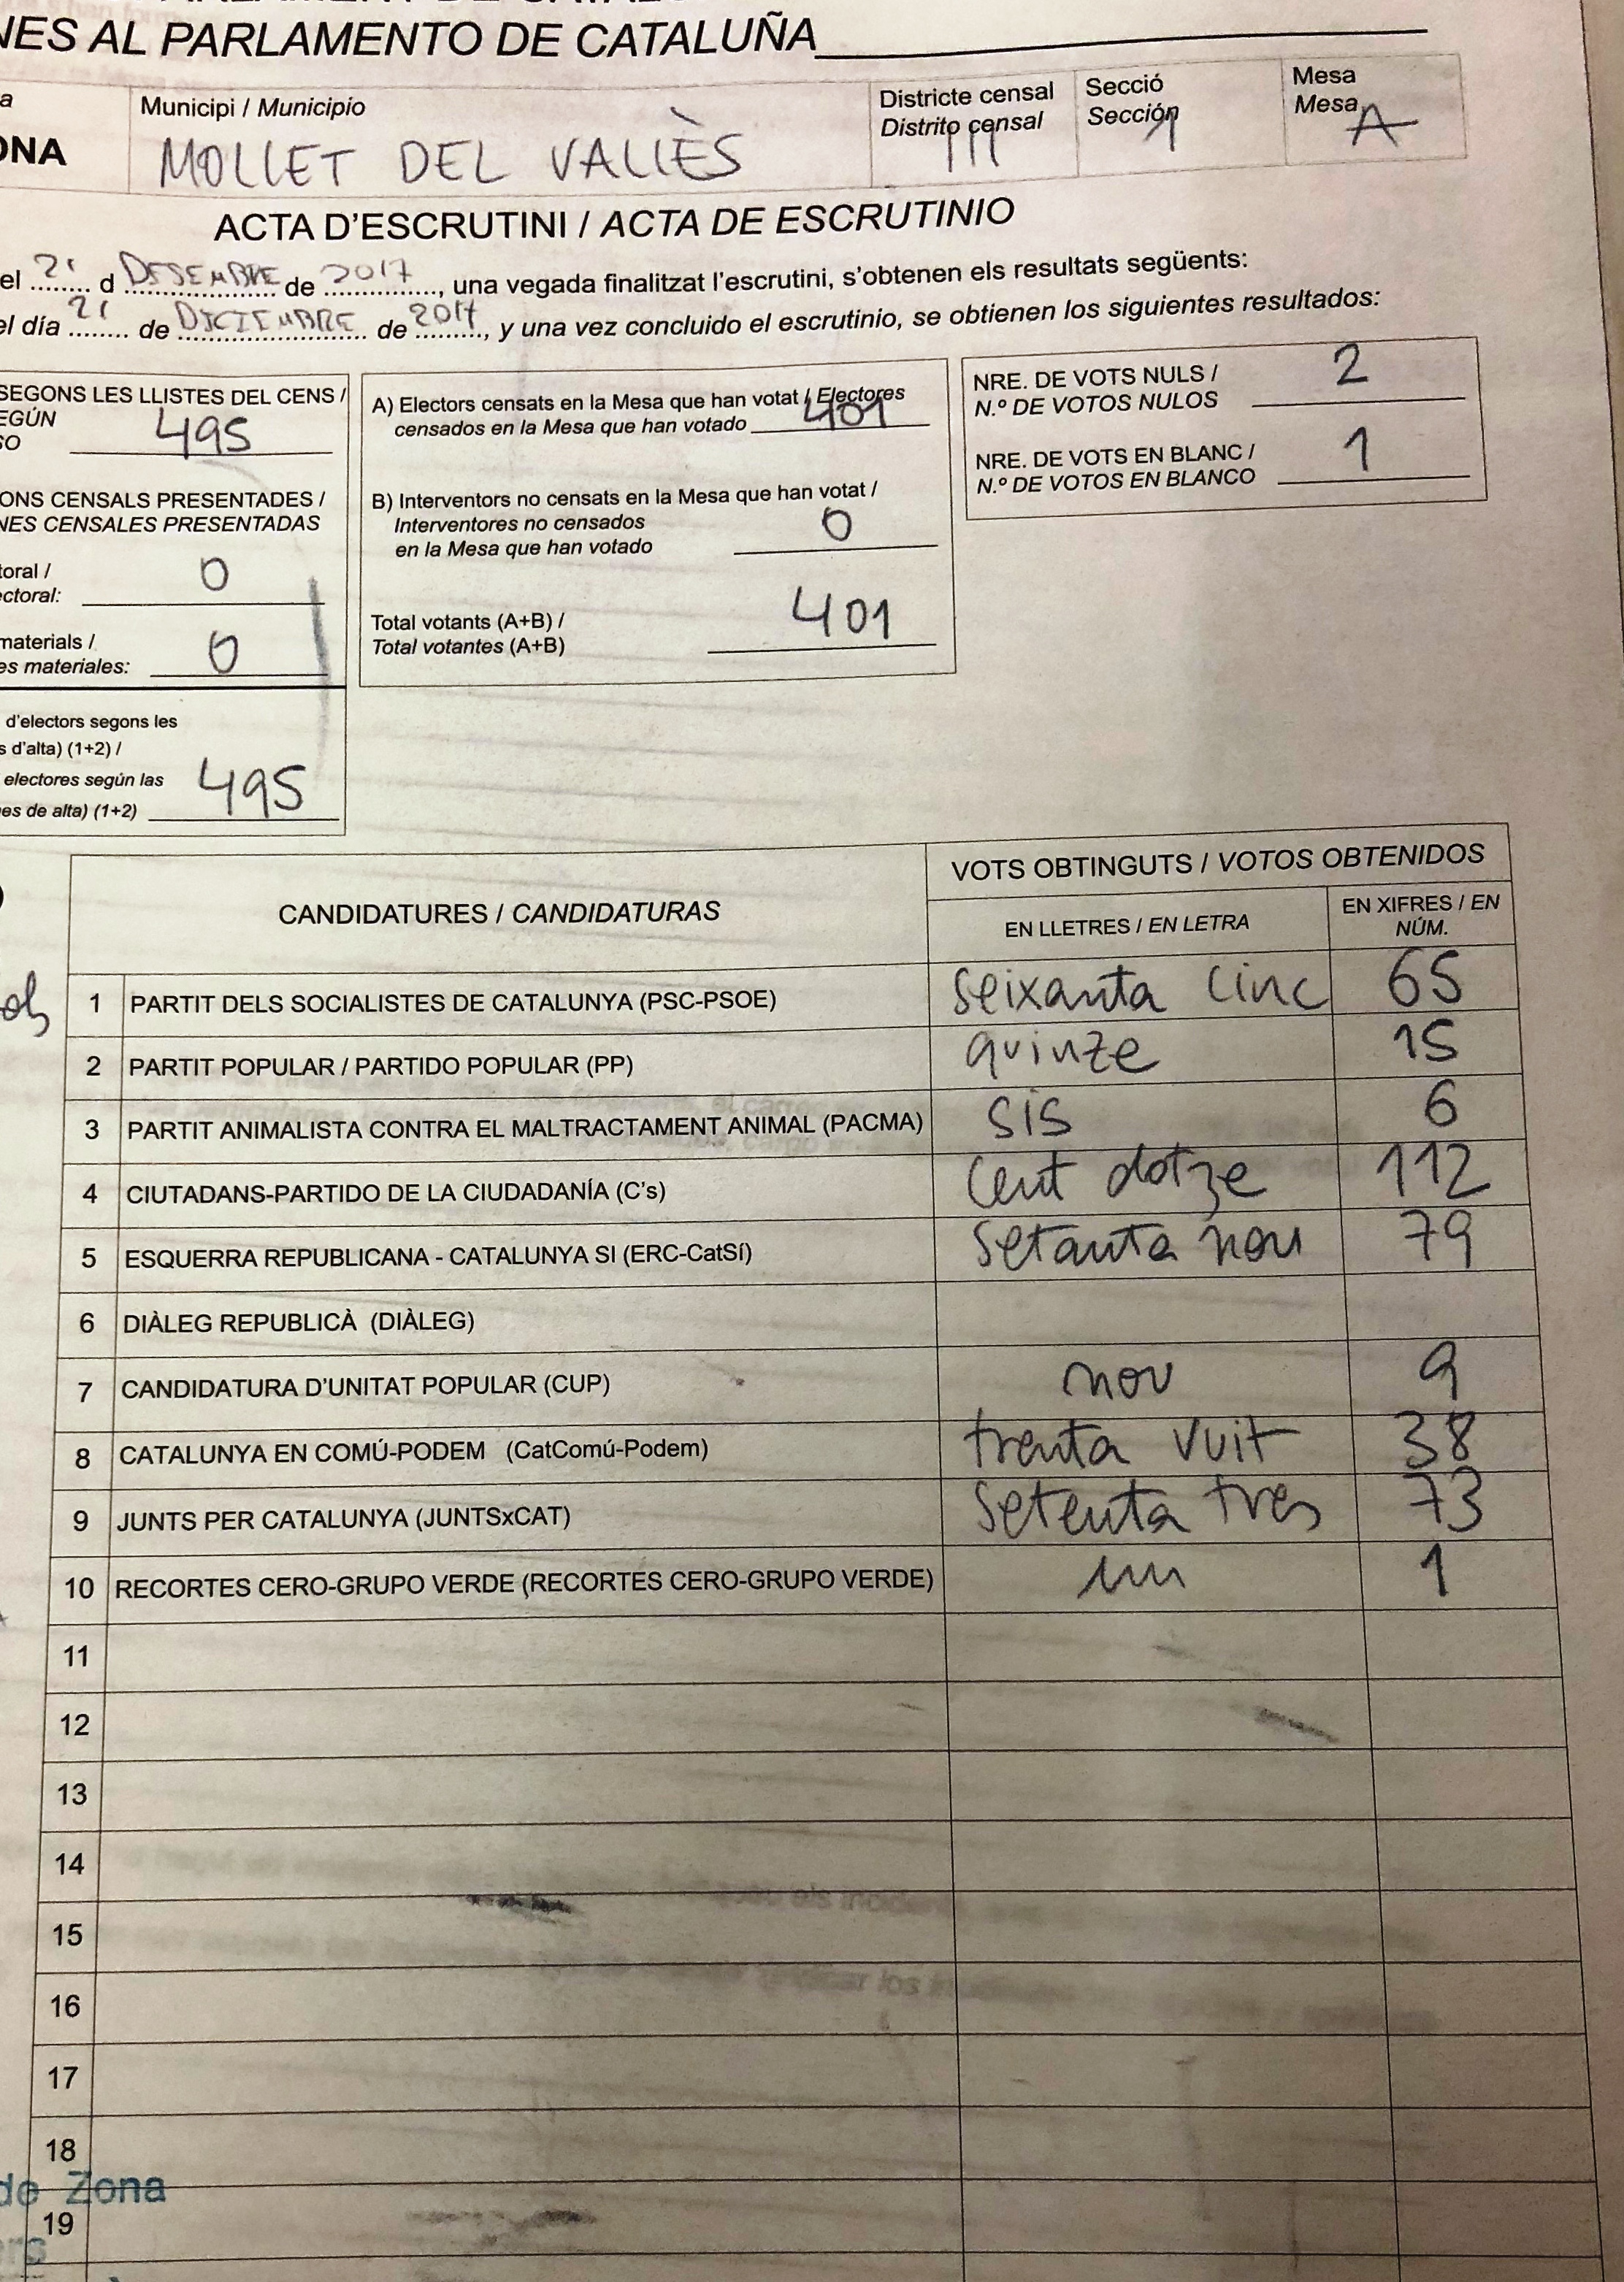 NES AL PARLAMENTO DE CATALUÑA
Municipi / Municipio
Districte censal
Distrito censal
Secció
Sección
Mesa
Mesa
ONA
MOLLET DEL VALLÈS
III
1
A
ACTA D'ESCRUTINI / ACTA DE ESCRUTINIO
el 21 d DESEMBRE de 2017, una vegada finalitzat l'escrutini, s'obtenen els resultats següents:
el día 21 de DICIEMBRE de 2017, y una vez concluido el escrutinio, se obtienen los siguientes resultados:
SEGONS LES LLISTES DEL CENS /
EGÚN
SO 495
ONS CENSALS PRESENTADES /
NES CENSALES PRESENTADAS
toral /
ectoral: 0
materials /
es materiales: 0
d'electors segons les
s d'alta) (1+2) /
electores según las
nes de alta) (1+2) 495
A) Electors censats en la Mesa que han votat / Electores
censados en la Mesa que han votado 401
B) Interventors no censats en la Mesa que han votat /
Interventores no censados
en la Mesa que han votado 0
Total votants (A+B) /
Total votantes (A+B) 401
NRE. DE VOTS NULS /
N.º DE VOTOS NULOS 2
NRE. DE VOTS EN BLANC /
N.º DE VOTOS EN BLANCO 1
CANDIDATURES / CANDIDATURAS
VOTS OBTINGUTS / VOTOS OBTENIDOS
EN LLETRES / EN LETRA
EN XIFRES / EN
NÚM.
1 PARTIT DELS SOCIALISTES DE CATALUNYA (PSC-PSOE) seixanta cinc 65
2 PARTIT POPULAR / PARTIDO POPULAR (PP) quinze 15
3 PARTIT ANIMALISTA CONTRA EL MALTRACTAMENT ANIMAL (PACMA) sis 6
4 CIUTADANS-PARTIDO DE LA CIUDADANÍA (C's) Cent dotze 112
5 ESQUERRA REPUBLICANA - CATALUNYA SI (ERC-CatSí) Setanta nou 79
6 DIÀLEG REPUBLICÀ (DIÀLEG)
7 CANDIDATURA D'UNITAT POPULAR (CUP) nou 9
8 CATALUNYA EN COMÚ-PODEM (CatComú-Podem) trenta vuit 38
9 JUNTS PER CATALUNYA (JUNTSxCAT) Setenta tres 73
10 RECORTES CERO-GRUPO VERDE (RECORTES CERO-GRUPO VERDE) un 1
11
12
13
14
15
16
17
18
de Zona
19